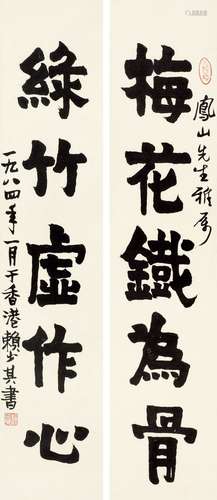 鳳山先生雅属
梅花鐵為骨
綠竹虛作心
一九八四年一月于香港賴少其書